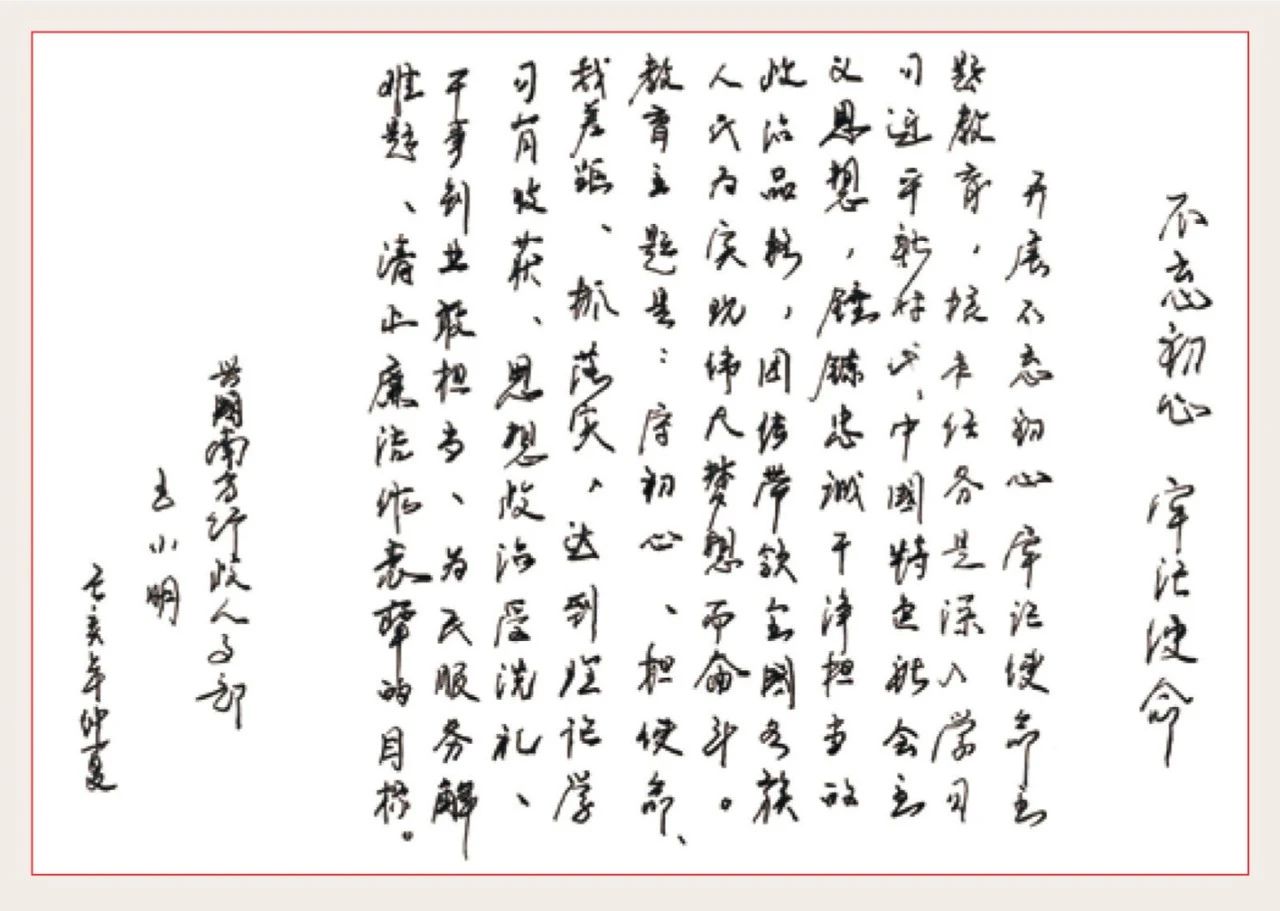 不忘初心 牢记使命
开展不忘初心牢记使命主
题教育，根本任务是深入学习
习近平新时代中国特色社会主
义思想，锤鍊忠诚干净担当的
政治品格，团结带领全國各族
人民为实现伟大梦想而奋斗。
教育主题是：守初心、担使命、
找差距、抓落实、达到理论学
习有收获、思想政治受洗礼、
干事创业敢担当、为民服务解
难题、清正廉洁作表率的目标。
兴國南方行政人事部
王小明
己亥年仲夏